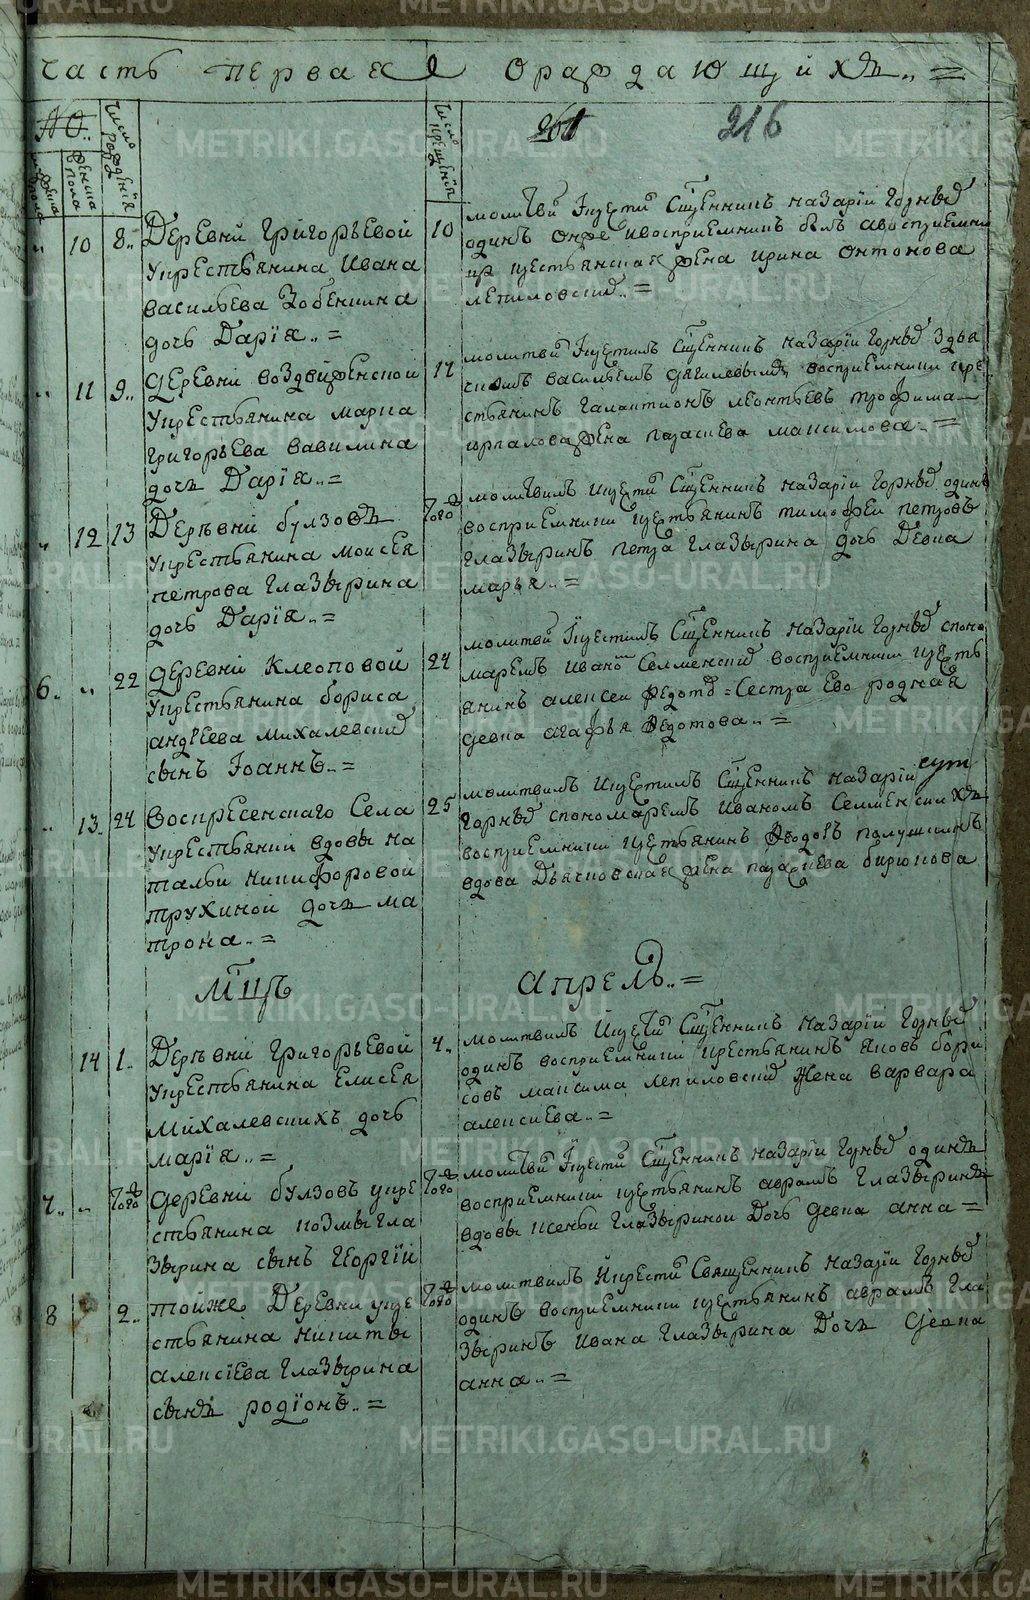 METRIKI.GASO-URAL.RU
часть первая О раждающихъ..=
№..
261
216
мужеска пола
женска пола
число раждения
число крещения
10
8..
Деревни Григорьевой
укрестьянина Ивана
васильева Зобенина
дочь Дарiя..=
10
молитвил Икрестил Сщенникъ назарiй
одинъ онже ивосприемникъ былъ авосприемни
ца крестьянская жена ирина онтонова
лепиловскихъ..=
11
9..
деревни воздвиженской
укрестьянина марка
григорьева вавилина
дочь Дарiя..=
молитвил Икрестилъ Сщенникъ назарiй
васильемъ восприемники кре
стьянинъ галактионъ леонтьевъ трофима
жена параскева максимова..=
12
13
Деревни булзовъ
укрестьянина моисея
петрова глазырина
дочь Дарiя..=
того
молитвилъ Икрестил Сщенникъ назарiй одинъ
восприемники крестьянинъ тимофеи петровъ
глазыринъ петра глазырина дочь Девка
марья..=
6..
22
деревни Клеоповой
укрестьянина бориса
андреева михалевских
сынъ Iоаннъ..=
24
молитвил Икрестилъ Сщенникъ назарiи споно
маремъ иваном Селменских восприемники кресть
янинъ алексеи федотов=Сестра Его родная
девка агафья Федотова..=
13.
24
воскресенскаго Села
укрестьянки вдовы на
тальи никифоровой
трухиной дочь ма
трона..=
25
молитвилъ Икрестилъ Сщенникъ назарiй
спономаремъ Иваномъ Селменскихъ
восприемники крестьянинъ
вдова Дьячковская жена параскева бирюкова
Мцъ Апрель..=
14
1..
Деревни Григорьевой
укрестьянина Елисея
михалевскихъ дочь
марiя..=
4..
молитвилъ Икрестил Сщенникъ назарiй
одинъ восприемники крестьянинъ яковъ бори
совъ максима лепиловских жена варвара
алексиева..=
7..
того
деревни булзовъ укре
стьянина козмы гла
зырина сынъ георгiй
того
молитвил Икрестил Сщенникъ назарiи одинъ
восприемники крестьянинъ аврамъ глазыринъ
вдовы глазыриной Дочь девка анна=
8
2..
тоиже Деревни укре
стьянина никиты
алексiева глазырина
сынъ родiонъ..=
того
молитвилъ Икрестил Священникъ назарiи
одинъ восприемники крестьянинъ аврамъ гла
зыринъ ивана глазырина Дочь девка
анна..=